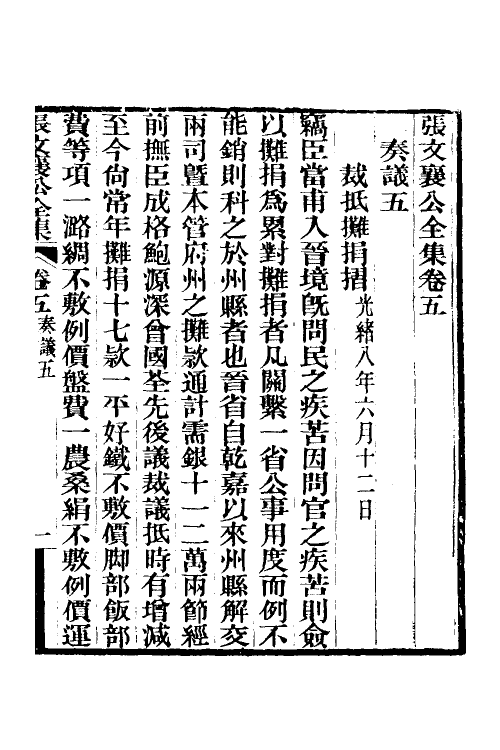 張文襄公全集卷五
奏議五
裁抵攤捐摺光緒八年六月十二日
竊臣當甫入晉境旣問民之疾苦因問官之疾苦則僉
以攤捐爲累對攤捐者凡關繫一省公事用度而例不
能銷則科之於州縣者也晉省自乾嘉以來州縣解交
兩司曁本管府州之攤款通計需銀十一二萬兩節經
前撫臣成格鮑源深曾國荃先後議裁議抵時有增減
至今尙常年攤捐十七款一平好鐵不敷價脚部飯部
費等項一潞綢不敷例價盤費一農桑絹不敷例價運
張文襄公全集
卷五奏議五
一